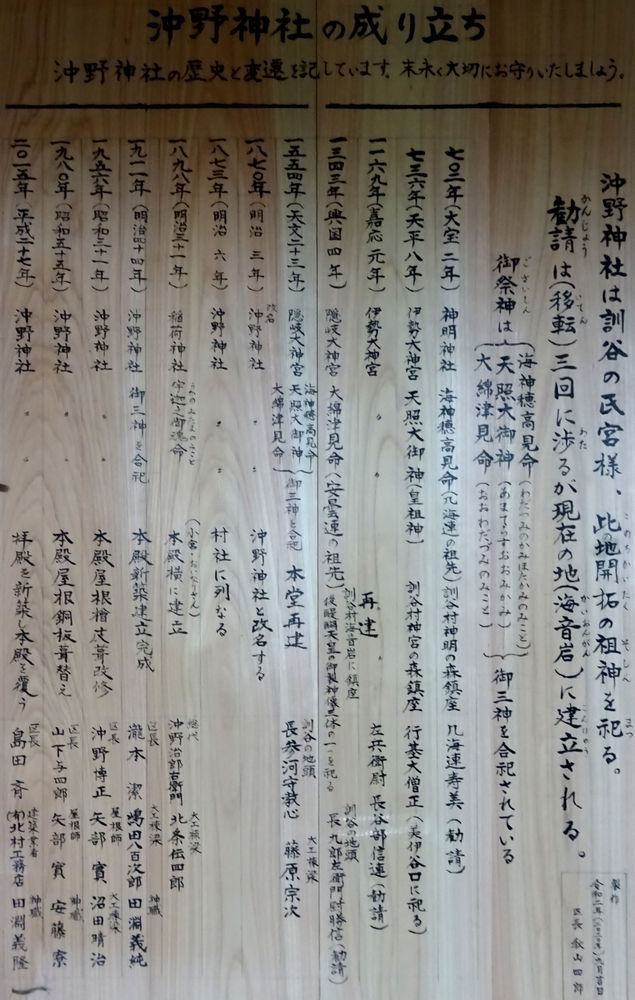 沖野神社の成り立ち
沖野神社の歴史と変遷を記しています。末永く大切にお守りいたしましょう。
沖野神社は訓谷の氏宮様、此地開拓の祖神を祀る。
勧請は(移転)三回に渉るが現在の地(海音岩)に建立される。
御祭神は
海神穂高見命(わだつみのかみほたかみのみこと)
天照大御神(あまてらすおおみかみ)
大綿津見命(おおわだつみのみこと)
御三神を合祀されている
七〇二年(大宝二年) 神明神社 海神穂高見命(凡海連の祖先) 訓谷村神明の森鎮座 凡海連寿美(勧請)
七三六年(天平八年) 伊勢大神宮 天照大御神(皇祖神) 訓谷村神宮の森鎮座 行基大僧正(美伊谷口に祀る)
一一六九年(嘉応元年) 伊勢大神宮 〃 再建 左兵衛尉長谷部信連(勧請)
一三四三年(興国四年) 隠岐大神宮 大綿津見命(安曇連の祖先) 訓谷村海音岩に鎮座 後醍醐天皇の御製神像三体の一つを祀る 訓谷の地頭 長九郎左衛門尉勝信(勧請)
一五五四年(天文二十三年) 隠岐大神宮 海神穂高見命 天照大御神 大綿津見命 御三神を合祀 本堂再建 訓谷の地頭 長参河守教心 大工棟梁 藤原宗次
一八七〇年(明治三年) 改名 沖野神社 〃 沖野神社と改名する
一八七三年(明治六年) 沖野神社 〃 村社に列なる
一八九八年(明治三十一年) 稲荷神社 宇迦之御魂命 (小宮・おいなりさん) 本殿横に建立 総代 沖野治郎右衛門 大工棟梁 北条伝四郎
一九一一年(明治四十四年) 沖野神社 御三神を合祀 本殿新築建立完成 区長 瀧本潔 大工棟梁 嶋田八百次郎 神職 田淵義純
一九五六年(昭和三十一年) 沖野神社 〃 本殿屋根檜皮葺改修 区長 沖野博正 屋根師 矢部寳 大工棟梁 沼田晴治
一九八〇年(昭和五十五年) 沖野神社 〃 本殿屋根銅板葺替え 区長 山下与四郎 屋根師 矢部寳 神職 安藤寮
二〇一五年(平成二十七年) 沖野神社 〃 拝殿を新築し本殿を覆う 区長 島田斉 建築業者 (有)北村工務店 神職 田淵義隆
製作
区長 秋山四郎